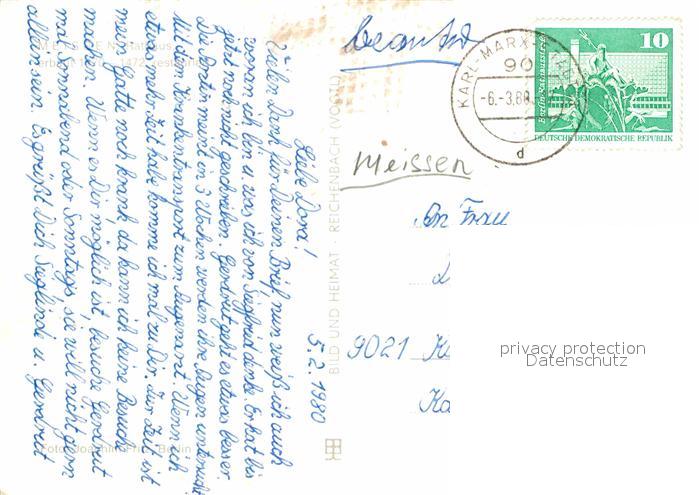 5.2.1980
Liebe Dora!
Vielen Dank für Deinen Brief, nun weiß ich auch
woran ich bin u. was ich von Siegfried denke. Er hat bis
jetzt noch nicht geschrieben. Gerdraut geht es etwas besser.
Die Ärztin meint in 3 Wochen werden ihre Augen untersucht.
Mit dem Krankentransport zum Augenarzt. Wenn ich
etwas mehr Zeit habe komme ich mal zu Dir. Zur Zeit ist
mein Gatte noch krank, da kann ich keine Besuche
machen. Wenn es Dir möglich ist, besuche Gerdraut
mal Sonnabend oder Sonntags, sie will nicht gern
allein sein. Es grüßt Dich Sieglinde u. Gerdraut
MEISSEN Rathaus
erbaut 1472
Foto: Joachim Fritz, Berlin
BILD UND HEIMAT · REICHENBACH (VOGTL)
beantw.
Meissen
KARL-MARX-STADT
90
-6.-3.80
d
10
Berlin, Rathausstraße
DEUTSCHE DEMOKRATISCHE REPUBLIK
An Frau
9021 K
Ka
privacy protection
Datenschutz